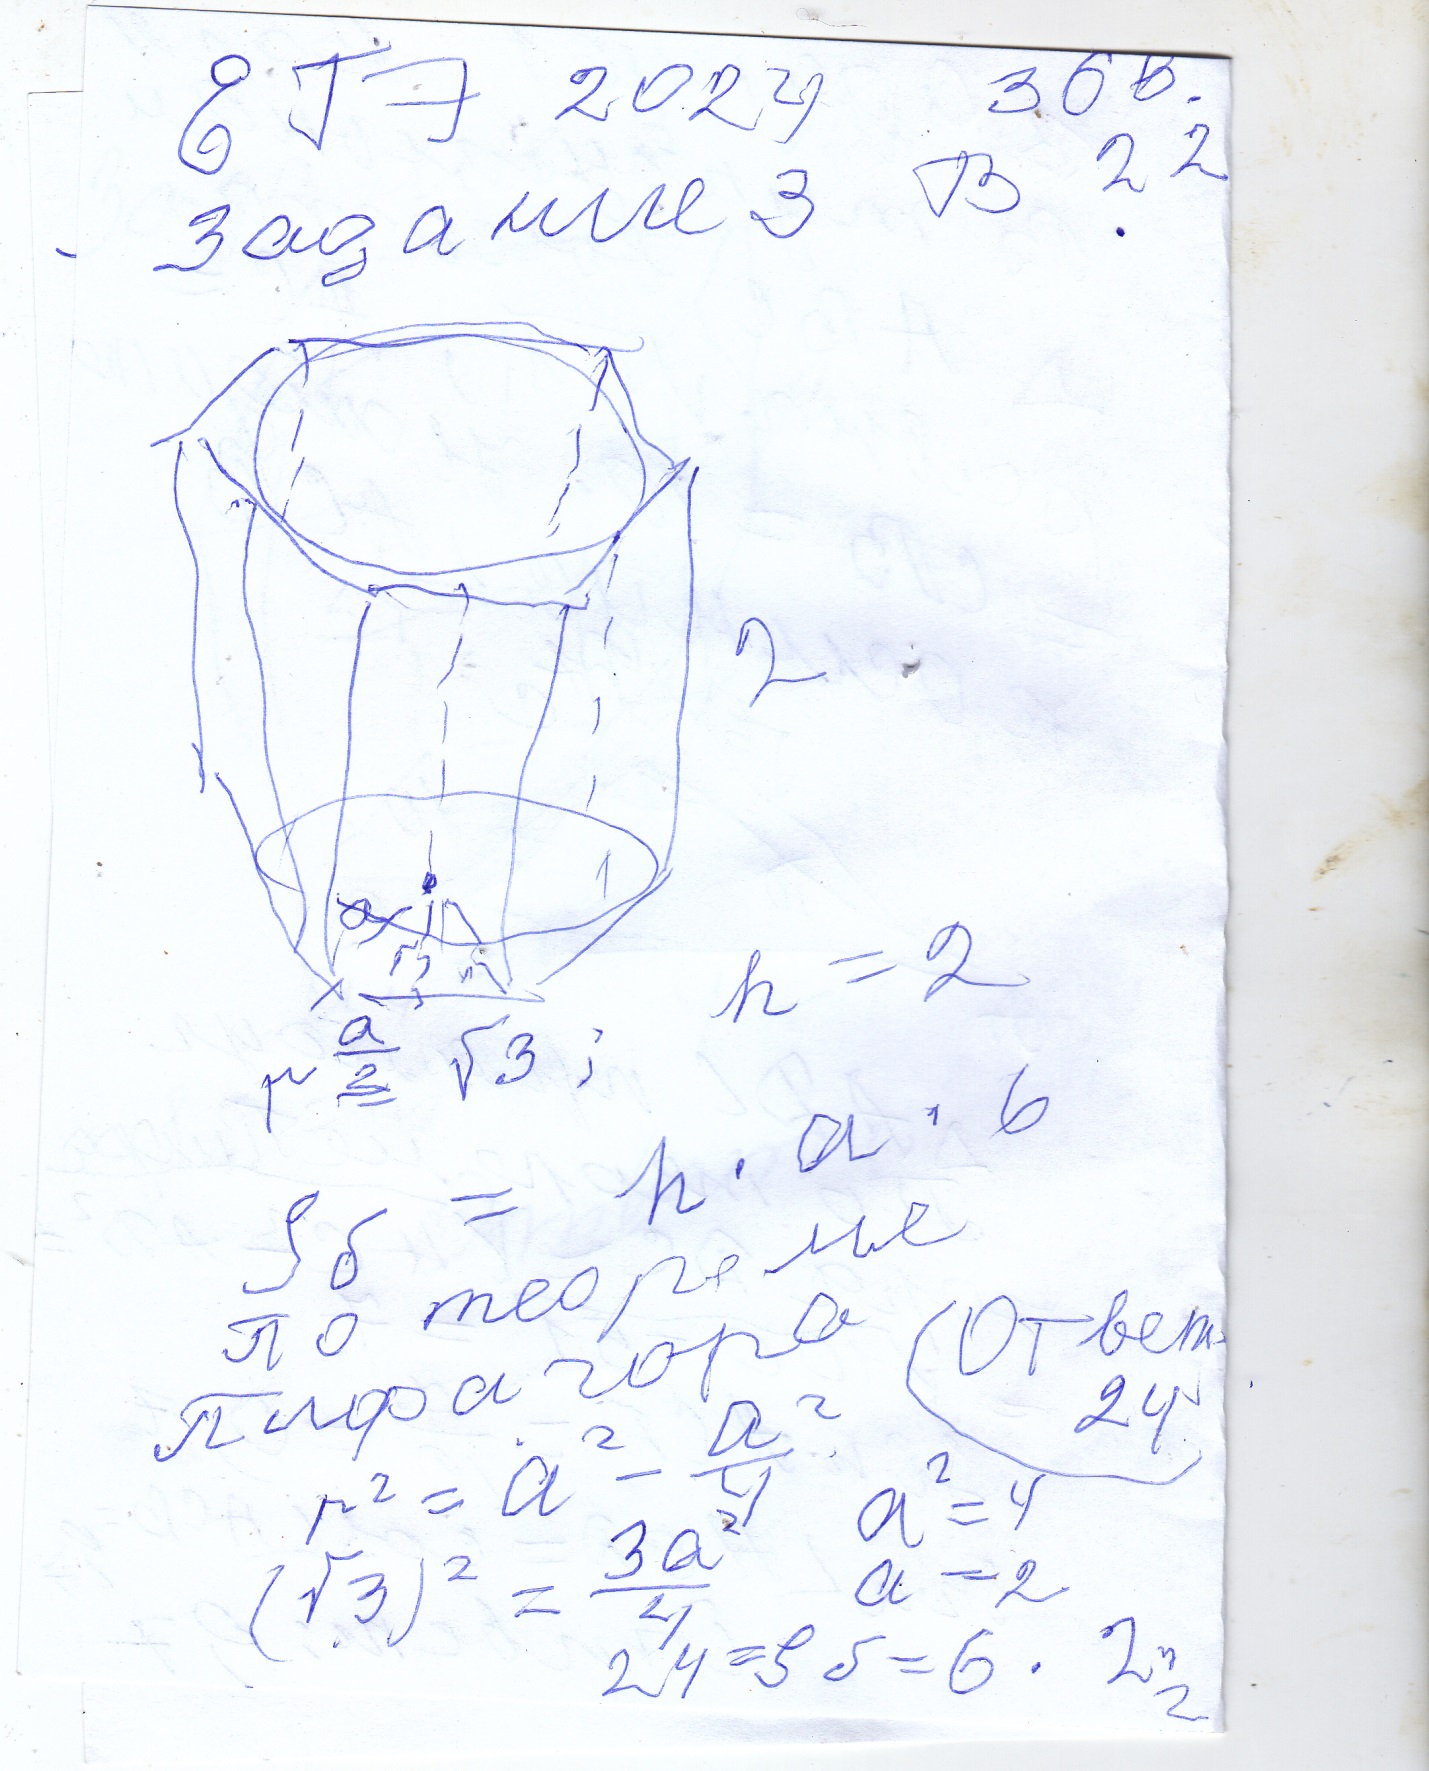 ЕГЭ 2024 36 в.
Задание 3 В 22
2
a
h = 2
a/2
r = √3;
Sб = h · a · 6
по теореме
пифагора
(Ответ
24
r² = a² - a²/4
a² = 4
(√3)² = 3a²/4
a = 2
24 = Sб = 6 · 2 · 2